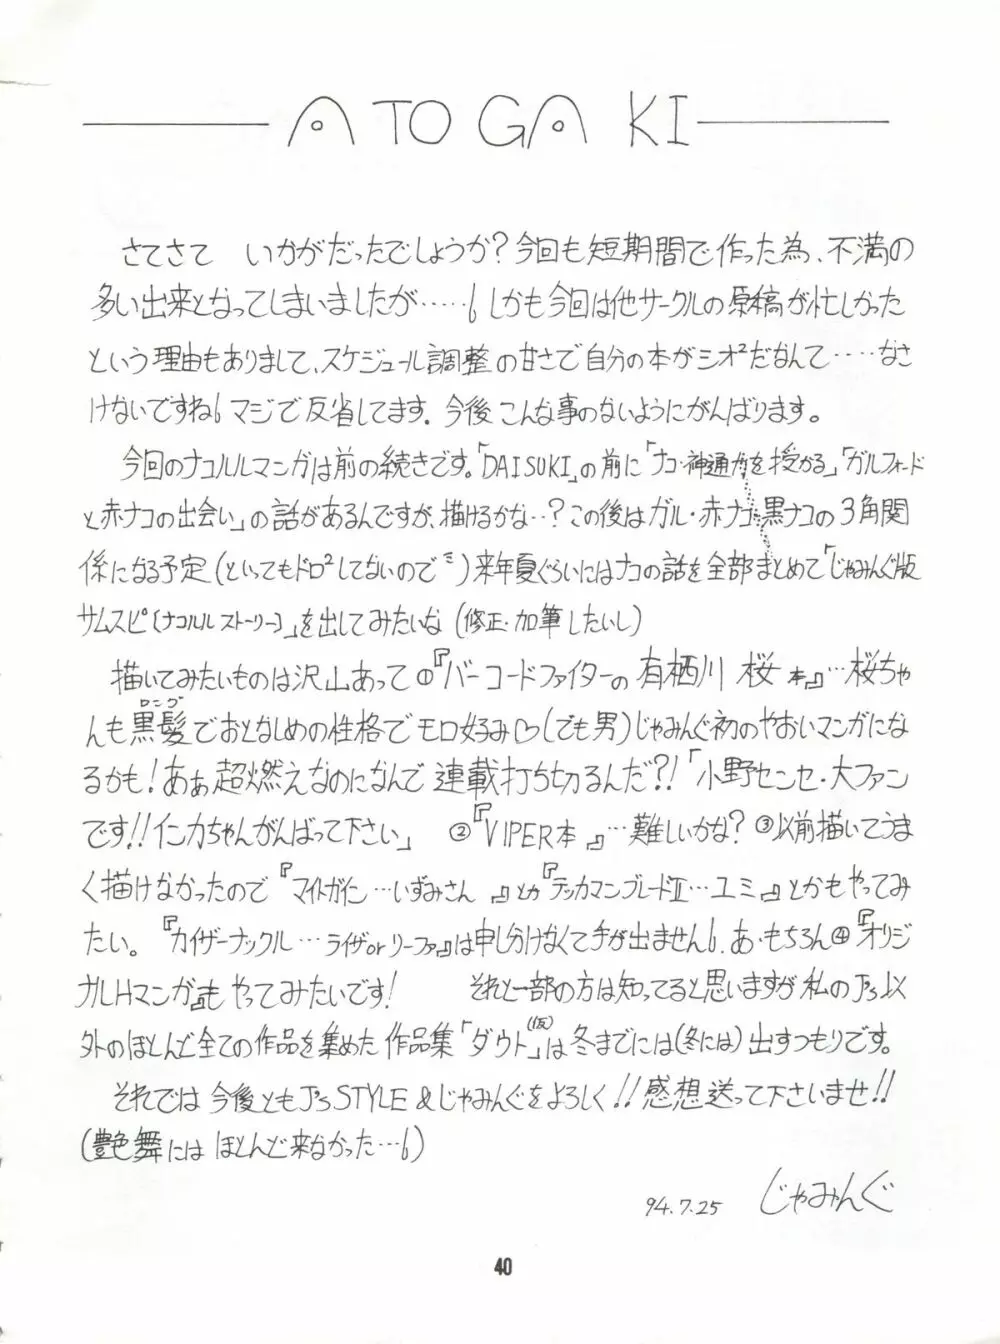 ATOGAKI
さてさて　いかがだったでしょうか?今回も短期間で作った為、不満の
多い出来となってしまいましたが……しかも今回は他サークルの原稿が忙しかった
という理由もありまして、スケジュール調整の甘さで自分の本がシオ²だなんて‥‥なさ
けないですね マジで反省してます。今後こんな事のないようにがんばります。
今回のナコルルマンガは前の続きです。「DAISUKI」の前に「ナコ・神通力を授かる」「ガルフォード
と赤ナコの出会い」の話があるんですが、描けるかな‥?この後はガル・赤ナコ・黒ナコの3角関
係になる予定(といってもドロ²してないので)来年夏ぐらいにはナコの話を全部まとめて「じゃみんぐ版
サムスピ〔ナコルルストーリー〕」を出してみたいな(修正・加筆したいし)
描いてみたいものは沢山あって①『バーコードファイターの有栖川 桜 本』…桜ちゃ
ロング
んも黒髪でおとなしめの性格でモロ好み♡(でも男)じゃみんぐ初のやおいマンガにな
るかも!あぁ超燃えなのになんで連載打ち切るんだ?!「小野センセ・大ファン
です!!インカちゃんがんばって下さい」　②『VIPER本』…難しいかな?③以前描いてうま
く描けなかったので『マイトガイン…いずみさん』とか『テッカマンブレードⅡ…ユミ』とかもやってみ
たい。『カイザーナックル…ライザorリーファ』は申し分けなくて手が出ません。あ・もちろん④『オリジ
ナルHマンガ』もやってみたいです!　それと一部の方は知ってると思いますが私のJ's以
外のほとんど全ての作品を集めた作品集「ダウト(仮)」は冬までには(冬には)出すつもりです。
それでは今後ともJ's STYLE &じゃみんぐをよろしく!!感想送って下さいませ!!
(艶舞にはほとんど来なかった…)
94.7.25 じゃみんぐ
40